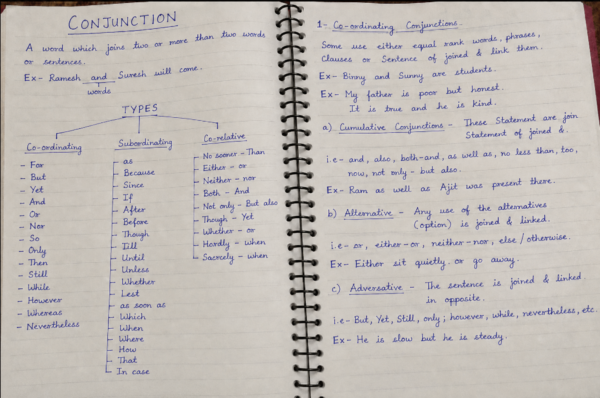 CONJUNCTION
A word which joins two or more than two words
or sentences.
Ex- Ramesh and Suresh will come.
words
TYPES
Co-ordinating
- For
- But
- Yet
- And
- Or
- Nor
- So
- Only
- Then
- Still
- While
- However
- Whereas
- Nevertheless
Subordinating
- as
- Because
- Since
- If
- After
- Before
- Though
- Till
- Until
- Unless
- Whether
- Lest
- as soon as
- Which
- When
- Where
- How
- That
- In case
Co-relative
- No sooner - Than
- Either - or
- Neither - nor
- Both - And
- Not only - But also
- Though - Yet
- Whether - or
- Hardly - when
- Sacrcely - when
1- Co-ordinating Conjunctions.
Some use either equal rank words, phrases,
Clauses or Sentence of joined & link them.
Ex- Binny and Sunny are students.
Ex- My father is poor but honest.
It is true and he is kind.
a) Cumulative Conjunctions - These Statement are join
Statement of joined &.
i.e- and, also, both-and, as well as, no less than, too,
now, not only - but also.
Ex- Ram as well as Ajit was present there.
b) Alternative - Any use of the alternatives
(option) is joined & linked.
i.e- or, either-or, neither-nor, else/otherwise.
Ex- Either sit quietly or go away.
c) Adversative - The sentence is joined & linked
in opposite.
i.e- But, Yet, Still, only; however, while, nevertheless, etc.
Ex- He is slow but he is steady.